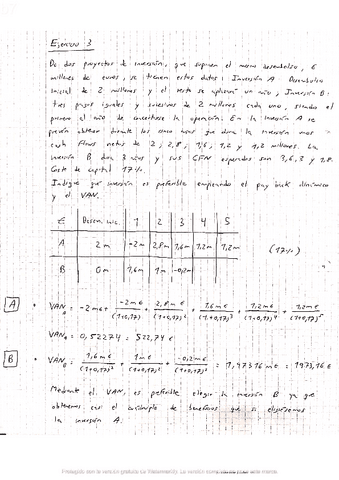 Ejercicio 3
De dos proyectos de inversión, que suponen el mismo desembolso, 6
millones de euros, se tienen estos datos: Inversión A: Desembolso
inicial de 2 millones y el resto se aplazará un año; Inversión B:
tres pagos iguales y sucesivos de 2 millones cada uno, siendo el
primero al año de concertarse la operación. En la inversión A se
prevén obtener durante los cinco años que dura la inversión unos
cash flows netos de 2; 2,8; 1,6; 1,2 y 1,2 millones. La
inversión B dura 3 años y sus CFN esperados son 3,6, 3 y 1,8.
Coste de capital 17%.
Indique que inversión es preferible empleando el pay back dinámico
y el VAN.
€ Desem. inic. 1 2 3 4 5
A 2m -2m 2,8m 1,6m 1,2m 1,2m (17%)
B 0m 1,6m 1m -0,2m
A • VAN_A = -2m€ + -2m€/(1+0,17)¹ + 2,8m€/(1+0,17)² + 1,6m€/(1+0,17)³ + 1,2m€/(1+0,17)⁴ + 1,2m€/(1+0,17)⁵
VAN_A = 0,52274 = 522,74 €
B • VAN_B = 1,6m€/(1+0,17)¹ + 1m€/(1+0,17)² + -0,2m€/(1+0,17)³ = 1,97316 m€ = 1973,16 €
Mediante el VAN, es preferible elegir la inversión B ya que
obtenemos casi el cuádruple de beneficios que si eligiéramos
la inversión A.